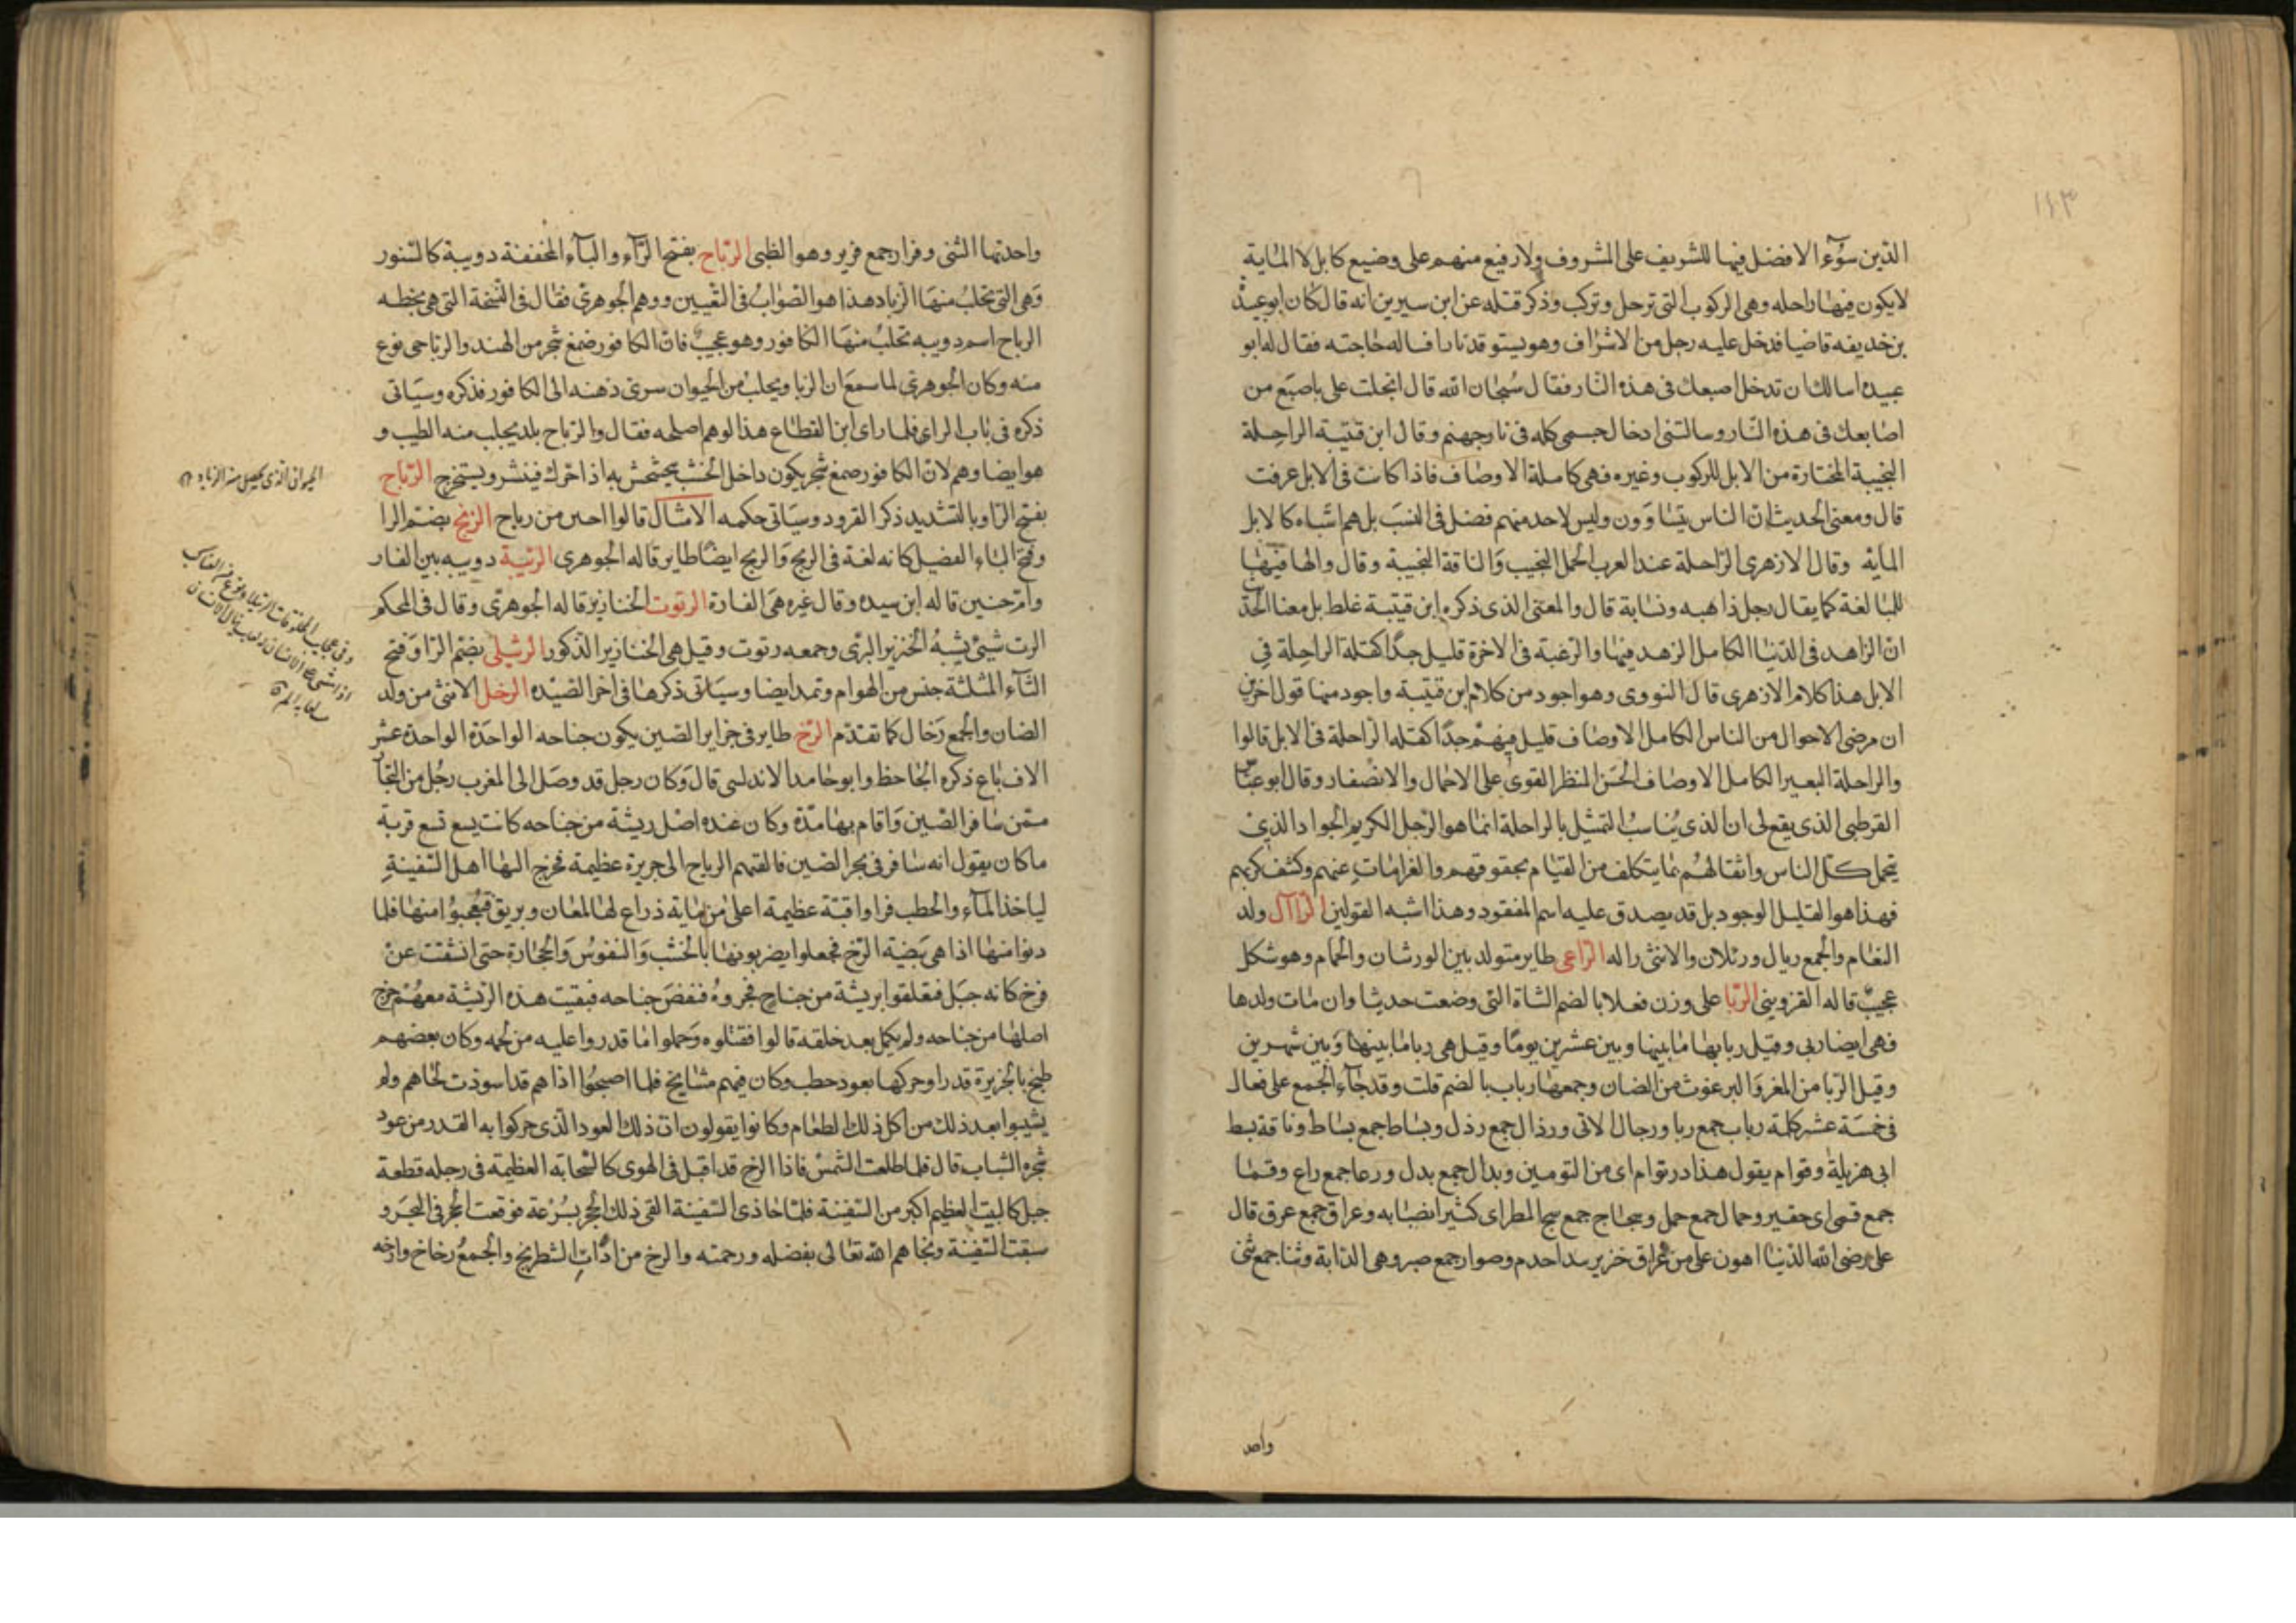 ١٤٣
الذين سوّء الافضل فيها للشريف على المشروف ولا رفيع منهم على وضيع كابل لا الماية
لا يكون فيها راحله وهى الركوب التى ترحل وتركب وذكر قتله عن ابن سيرين انه قال كان ابو عبيدة
بن خديفه قاضيا فدخل عليه رجل من الاشراف وهو يستوقد نارا فساله حاجته فقال له ابو
عبيده اسالك ان تدخل اصبعك فى هذه النار فقال سبحان الله قال ابخلت على باصبع من
اصابعك فى هذه النار وسالتنى ادخال جسمى كله فى نار جهنم وقال ابن قتيبة الراحلة
النجيبة المختارة من الابل للركوب وغيره فهى كاملة الاوصاف فاذا كانت فى الابل عرفت
قال ومعنى الحديث ان الناس يتساوون وليس لاحد منهم فضل فى النسب بل هم اشباه كالابل
الماية وقال الازهرى الراحلة عند العرب الجمل النجيب والناقة النجيبة وقال والها فيها
للمبالغة كما يقال رجل ذاهبه ونسابة قال والمعنى الذى ذكره ابن قتيبة غلط بل معنا الحديث
ان الزاهد فى الدنيا الكامل الزهد فيها والرغبة فى الاخرة قليل جدا كقلة الراحلة فى
الابل هذا كلام الازهرى قال النووى وهو اجود من كلام ابن قتيبة واجود منها قول اخرين
ان مرضى الاحوال من الناس الكامل الاوصاف قليل فيهم جدا كقلة الراحلة فى الابل قالوا
والراحلة البعير الكامل الاوصاف الحسن المنظر القوى على الاحمال والاسفار وقال ابو عباس
القرطبى الذى يقع لى ان الذى يناسب التمثيل بالراحلة انما هو الرجل الكريم الجواد الذى
يتحمل كل الناس واثقالهم بما يتكلف من القيام بحقوقهم والغرامات عنهم وكشف كربهم
فهذا هو القليل الوجود بل قد يصدق عليه اسم المفقود وهذا اشبه القولين الرآآل ولد
النعام والجمع ريال ورئلان والانثى راله الراعى طاير متولد بين الورشان والحمام وهو شكل
عجيب قاله القزوينى الربا على وزن فعلا بالضم الشاة التى وضعت حديثا وان مات ولدها
فهى ايضا ربى وقيل ربابها ما بينها وبين عشرين يوما وقيل هى ربا ما بينها وبين شهرين
وقيل الربا من المغز والبرغوث من الضان وجمعها رباب بالضم قلت وقد جاء الجمع على فعال
فى خمسة عشر كلمة رباب جمع ربا ورجال الاتى ورذال جمع رذل وبساط جمع بساط وناقة بسط
ابى هزيلة وقوام يقول هذا در توام اى من التومين وبدال جمع بدل ورعا جمع راع وقما
جمع قمى اى حقير وجمال جمع جمل وسحاج جمع سح المطر اى كثير انصبابه وعراق جمع عرق قال
على رضى الله الدنيا اهون على من عراق خزير بيد احدم وصوار جمع صبر وهى الدابة وثنا جمع ثنى
واحد
واحدتها الثنى وفرار جمع فرير وهو الظبى الرّباح بفتح الرّاء والباء المخففة دويبة كالسّنور
وهى التى تحلب منها الزباد هذا هو الصواب فى التّعيين ووهم الجوهرى فقال فى النّسخة التى هى بخطه
الرباح اسم دويبه تحلب منها الكافور وهو عجيب فان الكافور صمغ شجر من الهند والرباحى نوع
منه وكان الجوهرى لما سمع ان الزباد يحلب من الحيوان سرى ذهنه الى الكافور فذكره وسياتى
ذكره فى باب الراى فلما راى ابن القطاع هذا الوهم اصلحه فقال والرّباح بلد يجلب منه الطيب و
هو ايضا وهم لان الكافور صمغ شجر يكون داخل الخشب يخشخش به اذا حرك فينشر ويستخرج الرّباح
بفتح الرّا وبالتشديد ذكر القرود وسياتى حكمه الامثال قالوا احبن من رباح الربح بضم الرا
وفتح الباء الفصيل كانه لغة فى الربح والربح ايضا طاير قاله الجوهرى الرتيبة دويبه بين الفار
وام حنين قاله ابن سيده وقال غيره هى الفارة الرتوت الخنازيز قاله الجوهرى وقال فى المحكم
الرت شئ يشبه الخنزير البرى وجمعه رتوت وقيل هى الخنازير الذكور الرثيلى بضم الرّا وفتح
الثاء المثلثة جنس من الهوام وتمد ايضا وسياتى ذكرها فى اخر الصيد الرخل الانثى من ولد
الضان والجمع رخال كما تقدّم الرّخ طاير فى جزاير الصّين يكون جناحه الواحدة الواحدة عشر
الاف باع ذكره الجاحظ وابو حامد الاندلسى قال وكان رجل قد وصل الى المغرب رجل من التجار
ممن سافر الصين واقام بها مدة وكان عنده اصل ريشة من جناحه كانت يسع تسع قربة
ما كان يقول انه سافر فى بحر الصين فالقتهم الرياح الى جزيرة عظيمة فخرج اليها اهل السّفينة
لياخذ الماء والحطب فراوا قبة عظيمة اعلى من ماية ذراع لها لمعان وبريق فعجبوا منها فلما
دنوا منها اذا هى بيضة الرّخ فجعلوا يضربونها بالخشب والنفوس والحجارة حتى انشقت عن
فرخ كانه جبل فتعلقوا بريشة من جناح فجروه فنفض جناحه فبقيت هذه الرّيشة معهم خرج
اصلها من جناحه ولم يكمل بعد خلقه قالوا فقتلوه وحملوا ما قدروا عليه من لحمه وكان بعضهم
طبخ بالجزيرة قدرا وحركها بعود حطب وكان فيهم مشايخ فلما اصبحوا اذا هم قد اسودت لحاهم ولم
يشيبوا بعد ذلك من اكل ذلك الطعام وكانوا يقولون ان ذلك العود الّذى حركوا به القدر من عود
شجره الشباب قال فلما طلعت الشمس فاذا الرخ قد اقبل فى الهوى كالسّحابه العظيمة فى رجله قطعة
جبل كالبيت العظيم اكبر من السّفينة فلمّا حاذى السّفينة القى ذلك الحجر بسرعة فوقعت الحجر فى البحر و
سبقت السّفينة ونجاهم الله تعالى بفضله ورحمته والرخ من ادّات الشطرنج والجمع رخاخ وارخه
الحيوانى الذى يحصل منه الزباد